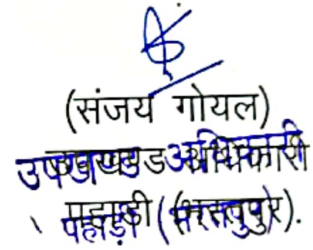 (संजय गोयल)
उपखण्ड अधिकारी
पहाड़ी (भरतपुर).